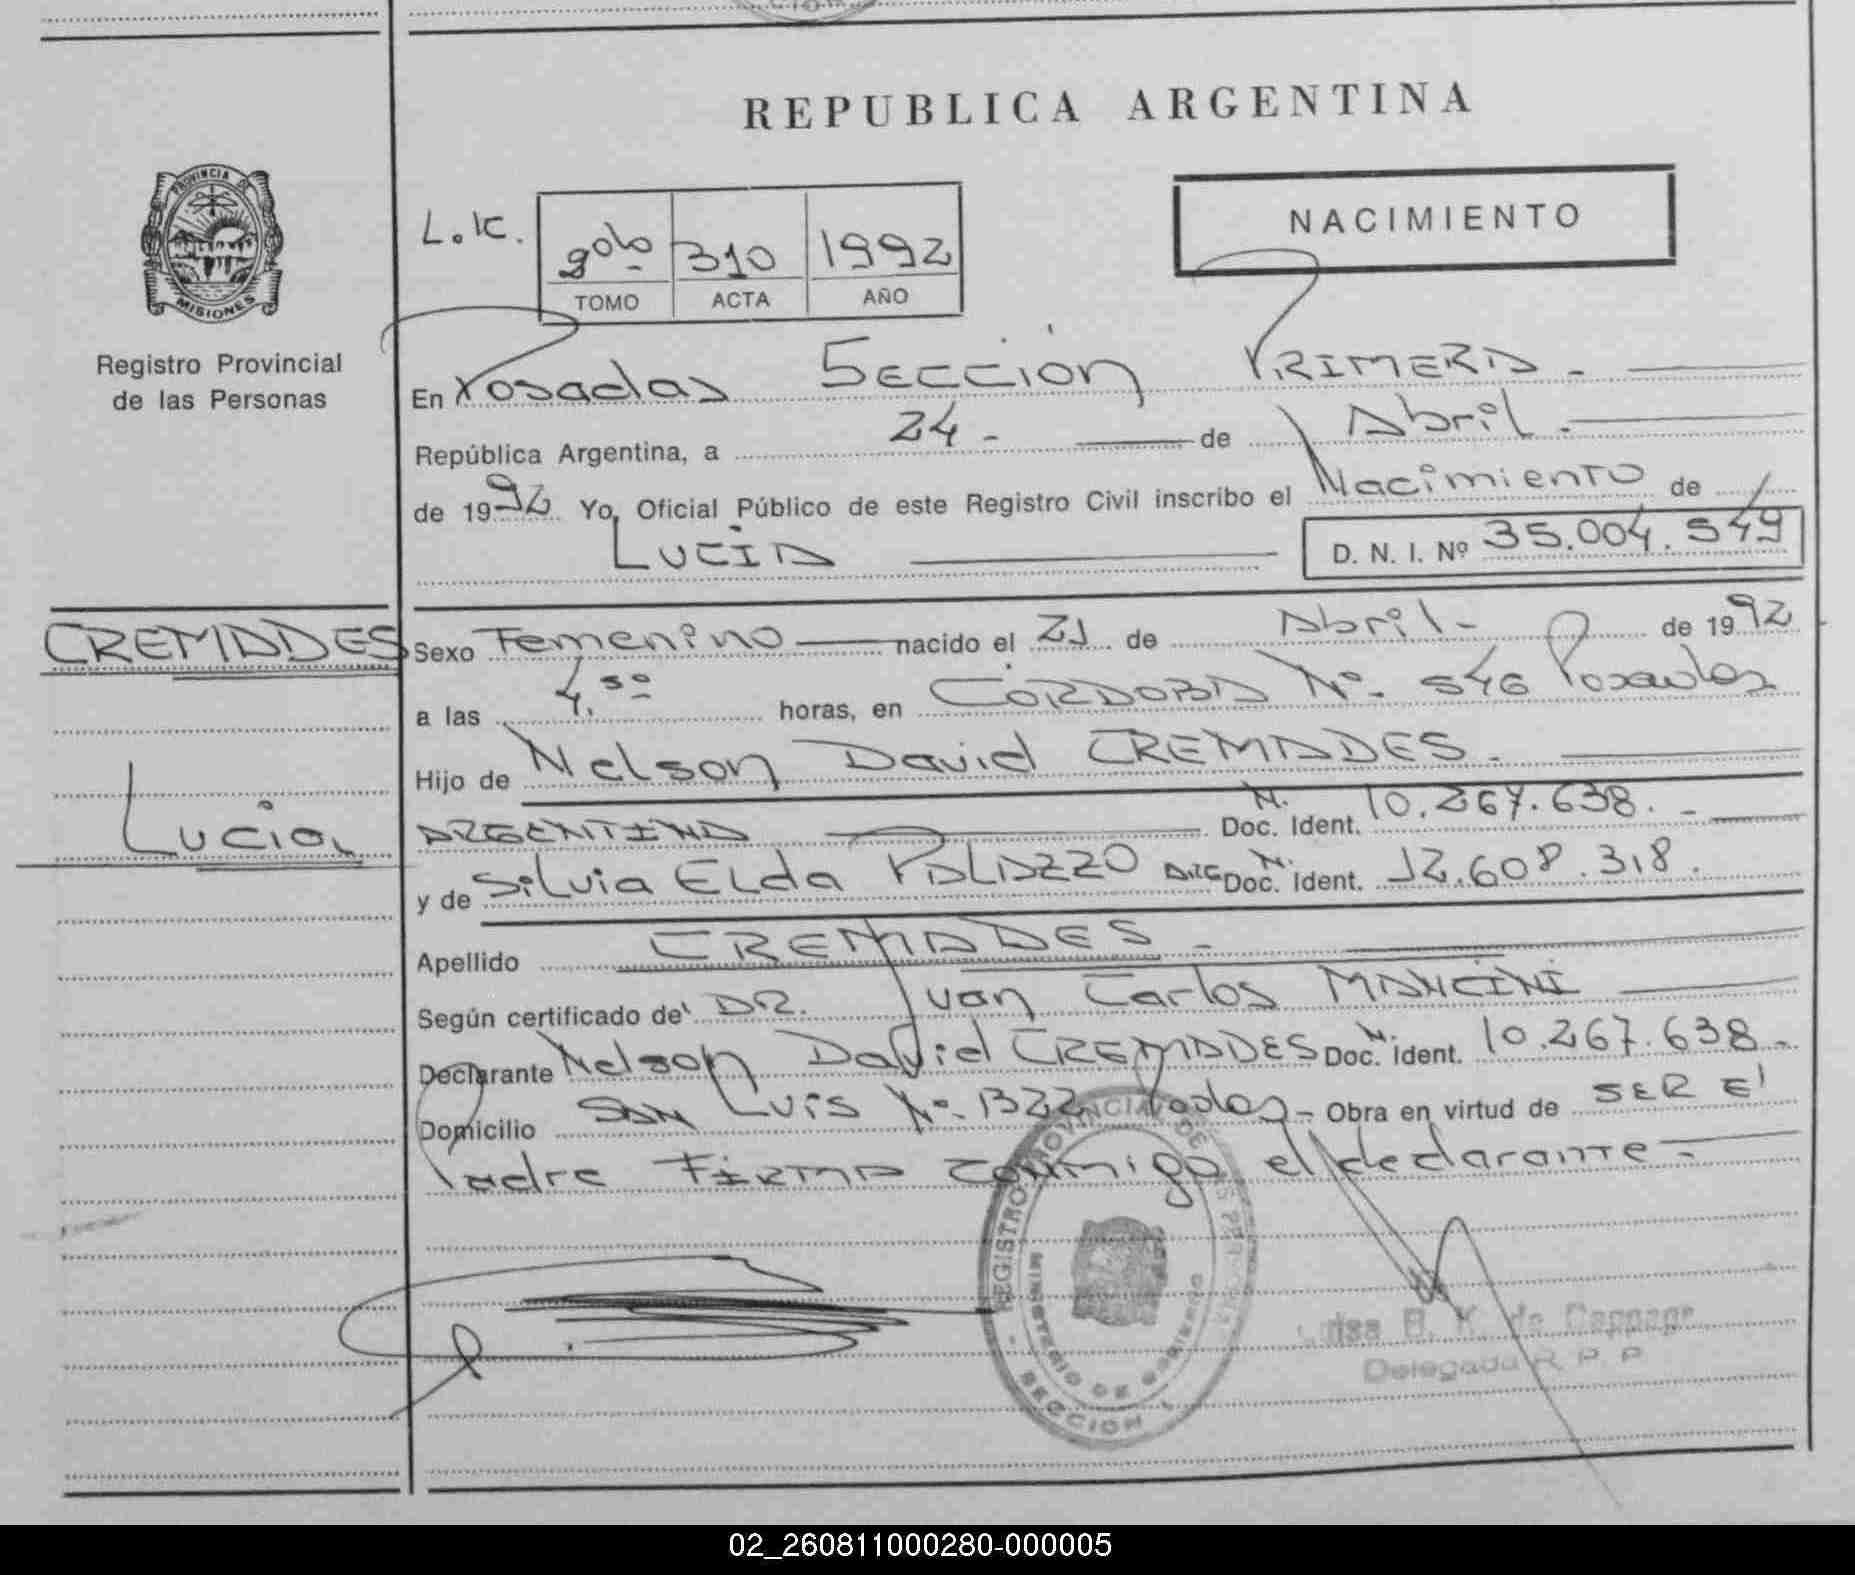 REPUBLICA ARGENTINA
PROVINCIA DE
MISIONES
Registro Provincial
de las Personas
L.K.
2do 310 1992
TOMO ACTA AÑO
NACIMIENTO
En Posadas Sección PRIMERA.
República Argentina, a 24 - de Abril.
de 1992 Yo, Oficial Público de este Registro Civil inscribo el Nacimiento de
LUCIA
D. N. I. Nº 35.004.549
CREMADES
Lucia
Sexo Femenino nacido el 21 de Abril- de 1992
a las 4.50 horas, en CORDOBA Nº. 546 Posadas
Hijo de Nelson David CREMADES.
ARGENTINA Doc. Ident. 10.267.638. -
y de Silvia Elda PALAZZO ARG Doc. Ident. 12.608.318.
Apellido CREMADES -
Según certificado de DR. Juan Carlos MANCINI
Declarante Nelson David CREMADES Doc. Ident. 10.267.638-
Domicilio SAN Luis Nº. 1322 Pdas - Obra en virtud de SER El
Padre FIRMA conmigo el declarante -
REGISTRO PROVINCIAL DE LAS PERSONAS
MINISTERIO DE GOBIERNO
SECCION 1
B. K. de
Delegada R. P. P.
02_260811000280-000005